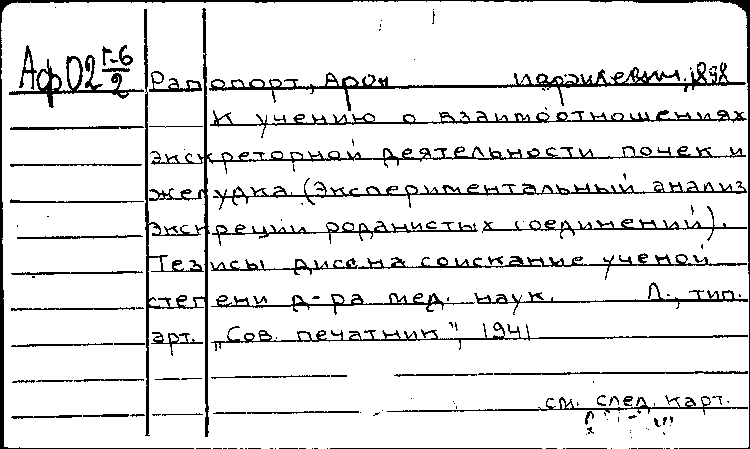 Аф02 Г-6/2
Рапопорт, Арон Израилевич, 1898
К учению о взаимоотношениях
экскреторной деятельности почек и
желудка (Экспериментальный анализ
экскреции роданистых соединений).
Тезисы дисс. на соискание ученой
степени д-ра мед. наук. Л., тип.
арт. „Сов. печатник", 1941
см. след. карт.